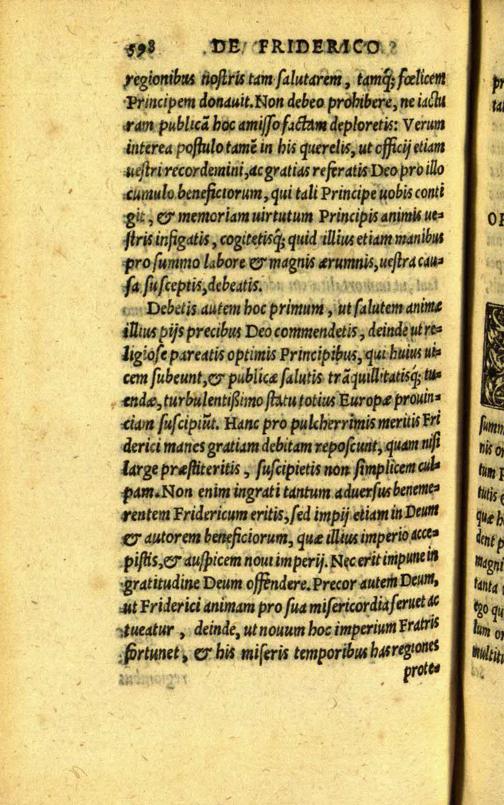 598 DE FRIDERICO
regionibus nostris tam salutarem, tamq́; fœlicem
Principem donauit. Non debeo prohibere, ne iactu
ram publicã hoc amisso factam deploretis: Verum
interea postulo tamẽ in his querelis, ut officij etiam
uestri recordemini, ac gratias referatis Deo pro illo
cumulo beneficiorum, qui tali Principe uobis conti
git, & memoriam uirtutum Principis animis ue-
stris infigatis, cogitetisq́; quid illius etiam manibus
pro summo labore & magnis ærumnis, uestra cau-
sa susceptis, debeatis.
Debetis autem hoc primum, ut salutem animæ
illius pijs precibus Deo commendetis, deinde ut re-
ligiose pareatis optimis Principibus, qui huius ui-
cem subeunt, & publicæ salutis trãquillitatisq́; tu-
endæ, turbulentißimo statu totius Europæ prouin-
ciam suscipiũt. Hanc pro pulcherrimis meritis Fri
derici manes gratiam debitam reposcunt, quam nisi
large præstiteritis, suscipietis non simplicem cul-
pam. Non enim ingrati tantum aduersus beneme-
rentem Fridericum eritis, sed impij etiam in Deum
& autorem beneficiorum, quæ illius imperio acce-
pistis, & auspicem noui imperij. Nec erit impune in
gratitudine Deum offendere. Precor autem Deum,
ut Friderici animam pro sua misericordia seruet ac
tueatur, deinde, ut nouum hoc imperium Fratris
fortunet, & his miseris temporibus has regiones
prote-
summ
nis o
tum
tutis
quæ h
dent p
magni
tanta
ego qu
lum or
multit